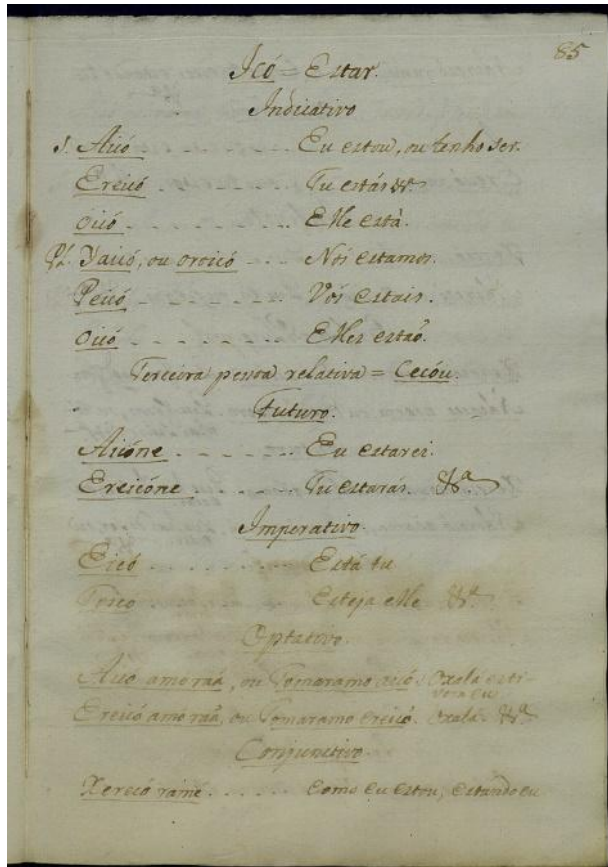 85
Icó = Estar.
Indicativo
S. Aicó - - - - - - - - Eu estou, ou tenho ser.
Ereicó - - - - - - - Tu estás &ª
oicó - - - - - - - - Elle està.
Pl. Yaicó, ou oroicó - - - - Nós estamos.
Peicó - - - - - - - Vós estais.
oicó - - - - - - - - Elles estaõ.
Terceira pessoa relativa = Cecóu.
Futuro.
Aicóne - - - - - - - Eu estarei.
Ereicóne - - - - - - Tu estarás. &ª
Imperativo.
Eicó - - - - - - - - Está tu
Toico - - - - - - - Esteja elle &ª
Optativo.
Aico amo raã, ou Tomaramo aicó. Oxalà esti-
vera eu
Ereicó amo raã, ou Tomaramo ereicó. Oxalà. &ª
Conjunctivo.
Xerecó ramé - - - - - - Como eu estou, estando eu